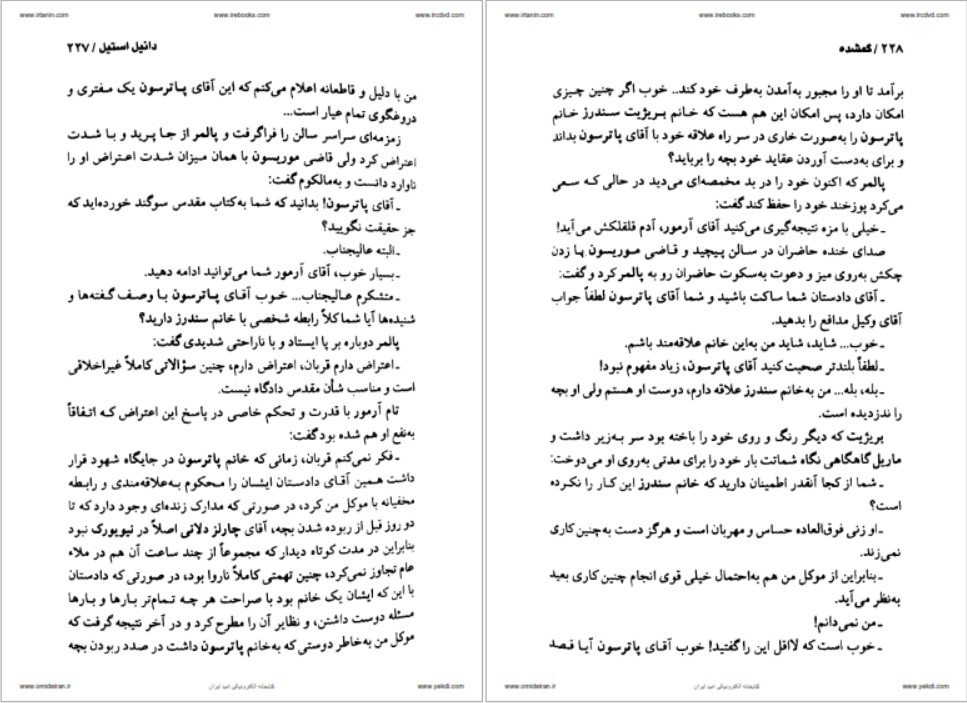 www.irtanin.com www.irebooks.com www.ircdvd.com
دانیل استیل / ۲۲۷
من با دلیل و قاطعانه اعلام می‌کنم که این آقای پاترسون یک مفتری و
دروغگوی تمام عیار است...
زمزمه‌ای سراسر سالن را فراگرفت و پالمر از جا پرید و با شدت
اعتراض کرد ولی قاضی موریسون با همان میزان شدت اعتراض او را
ناوارد دانست و به‌مالکوم گفت:
ـ آقای پاترسون! بدانید که شما به‌کتاب مقدس سوگند خورده‌اید که
جز حقیقت نگویید؟
ـ البته عالیجناب.
ـ بسیار خوب، آقای آرمور شما می‌توانید ادامه دهید.
ـ متشکرم عالیجناب... خوب آقای پاترسون با وصف گفته‌ها و
شنیده‌ها آیا شما کلاً رابطه شخصی با خانم سندرز دارید؟
پالمر دوباره بر پا ایستاد و با ناراحتی شدیدی گفت:
ـ اعتراض دارم قربان، اعتراض دارم، چنین سؤالاتی کاملاً غیراخلاقی
است و مناسب شأن مقدس دادگاه نیست.
تام آرمور با قدرت و تحکم خاصی در پاسخ این اعتراض که اتفاقاً
به‌نفع او هم شده بود گفت:
ـ فکر نمی‌کنم قربان، زمانی که خانم پاترسون در جایگاه شهود قرار
داشت همین آقای دادستان ایشان را محکوم به‌علاقه‌مندی و رابطه
مخفیانه با موکل من کرد، در صورتی که مدارک زنده‌ای وجود دارد که تا
دو روز قبل از ربوده شدن بچه، آقای چارلز دلانی اصلاً در نیویورک نبود
بنابراین در مدت کوتاه دیدار که مجموعاً از چند ساعت آن هم در ملاء
عام تجاوز نمی‌کرد، چنین تهمتی کاملاً ناروا بود، در صورتی که دادستان
با این که ایشان یک خانم بود با صراحت هر چه تمام‌تر بارها و بارها
مسئله دوست داشتن، و نظایر آن را مطرح کرد و در آخر نتیجه گرفت که
موکل من به‌خاطر دوستی که به‌خانم پاترسون داشت در صدد ربودن بچه
www.omideiran.ir کتابخانه الکترونیکی امید ایران www.yekdi.com
www.irtanin.com www.irebooks.com www.ircdvd.com
۲۲۸ / گمشده
برآمد تا او را مجبور به‌آمدن به‌طرف خود کند.. خوب اگر چنین چیزی
امکان دارد، پس امکان این هم هست که خانم بریژیت سندرز خانم
پاترسون را به‌صورت خاری در سر راه علاقه خود با آقای پاترسون بداند
و برای به‌دست آوردن عقاید خود بچه را برباید؟
پالمر که اکنون خود را در بد مخمصه‌ای می‌دید در حالی که سعی
می‌کرد پوزخند خود را حفظ کند گفت:
ـ خیلی با مزه نتیجه‌گیری می‌کنید آقای آرمور، آدم قلقلکش می‌آید!
صدای خنده حاضران در سالن پیچید و قاضی موریسون با زدن
چکش به‌روی میز و دعوت به‌سکوت حاضران رو به پالمر کرد و گفت:
ـ آقای دادستان شما ساکت باشید و شما آقای پاترسون لطفاً جواب
آقای وکیل مدافع را بدهید.
ـ خوب... شاید، شاید من به‌این خانم علاقه‌مند باشم.
ـ لطفاً بلندتر صحبت کنید آقای پاترسون، زیاد مفهوم نبود!
ـ بله، بله... من به‌خانم سندرز علاقه دارم، دوست او هستم ولی او بچه
را ندزدیده است.
بریژیت که دیگر رنگ و روی خود را باخته بود سر به‌زیر داشت و
ماریل گاهگاهی نگاه شماتت بار خود را برای مدتی به‌روی او می‌دوخت:
ـ شما از کجا آنقدر اطمینان دارید که خانم سندرز این کار را نکرده
است؟
ـ او زنی فوق‌العاده حساس و مهربان است و هرگز دست به‌چنین کاری
نمی‌زند.
ـ بنابراین از موکل من هم به‌احتمال خیلی قوی انجام چنین کاری بعید
به‌نظر می‌آید.
ـ من نمی‌دانم!
ـ خوب است که لااقل این را گفتید! خوب آقای پاترسون آیا قصد
www.omideiran.ir کتابخانه الکترونیکی امید ایران www.yekdi.com